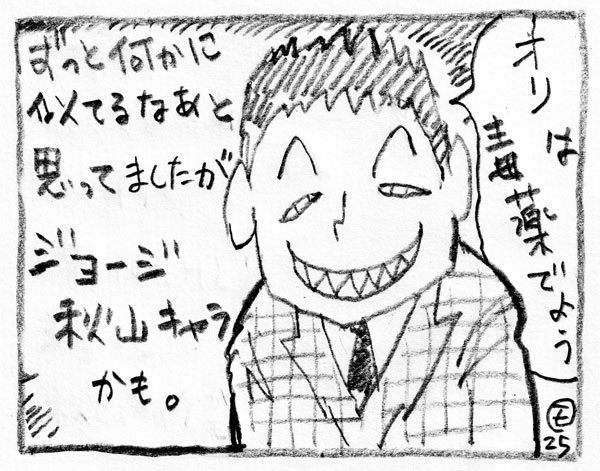 オリは
毒薬でよう
ずっと何かに
似てるなあと
思ってましたが
ジョージ
秋山キャラ
かも。
モ
25